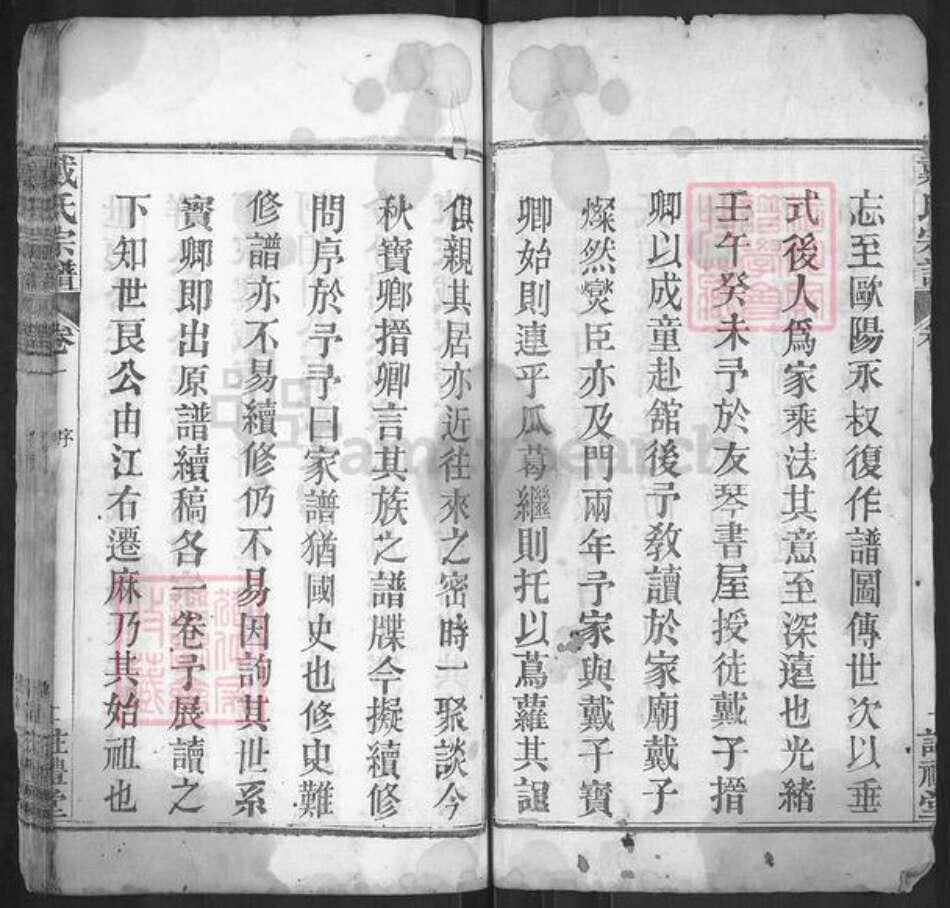 志至歐陽永叔復作譜圖傳世次以垂
式後人爲家乘法其意至深遠也光緒
壬午癸未予於友琴書屋授徒戴子搢
卿以成童赴舘後予敎讀於家廟戴子
燦然燮臣亦及門兩年予家與戴子寳
卿始則連乎瓜葛繼則托以蔦蘿其誼
俱親其居亦近往來之密時一聚談今
秋寳卿搢卿言其族之譜牒今擬續修
問序於予予曰家譜猶國史也修史難
修譜亦不易續修仍不易因詢其世系
寳卿即出原譜續稿各一卷予展讀之
下知世艮公由江右遷麻乃其始祖也
戴氏宗譜
卷一
序
二
註禮堂
familysearch